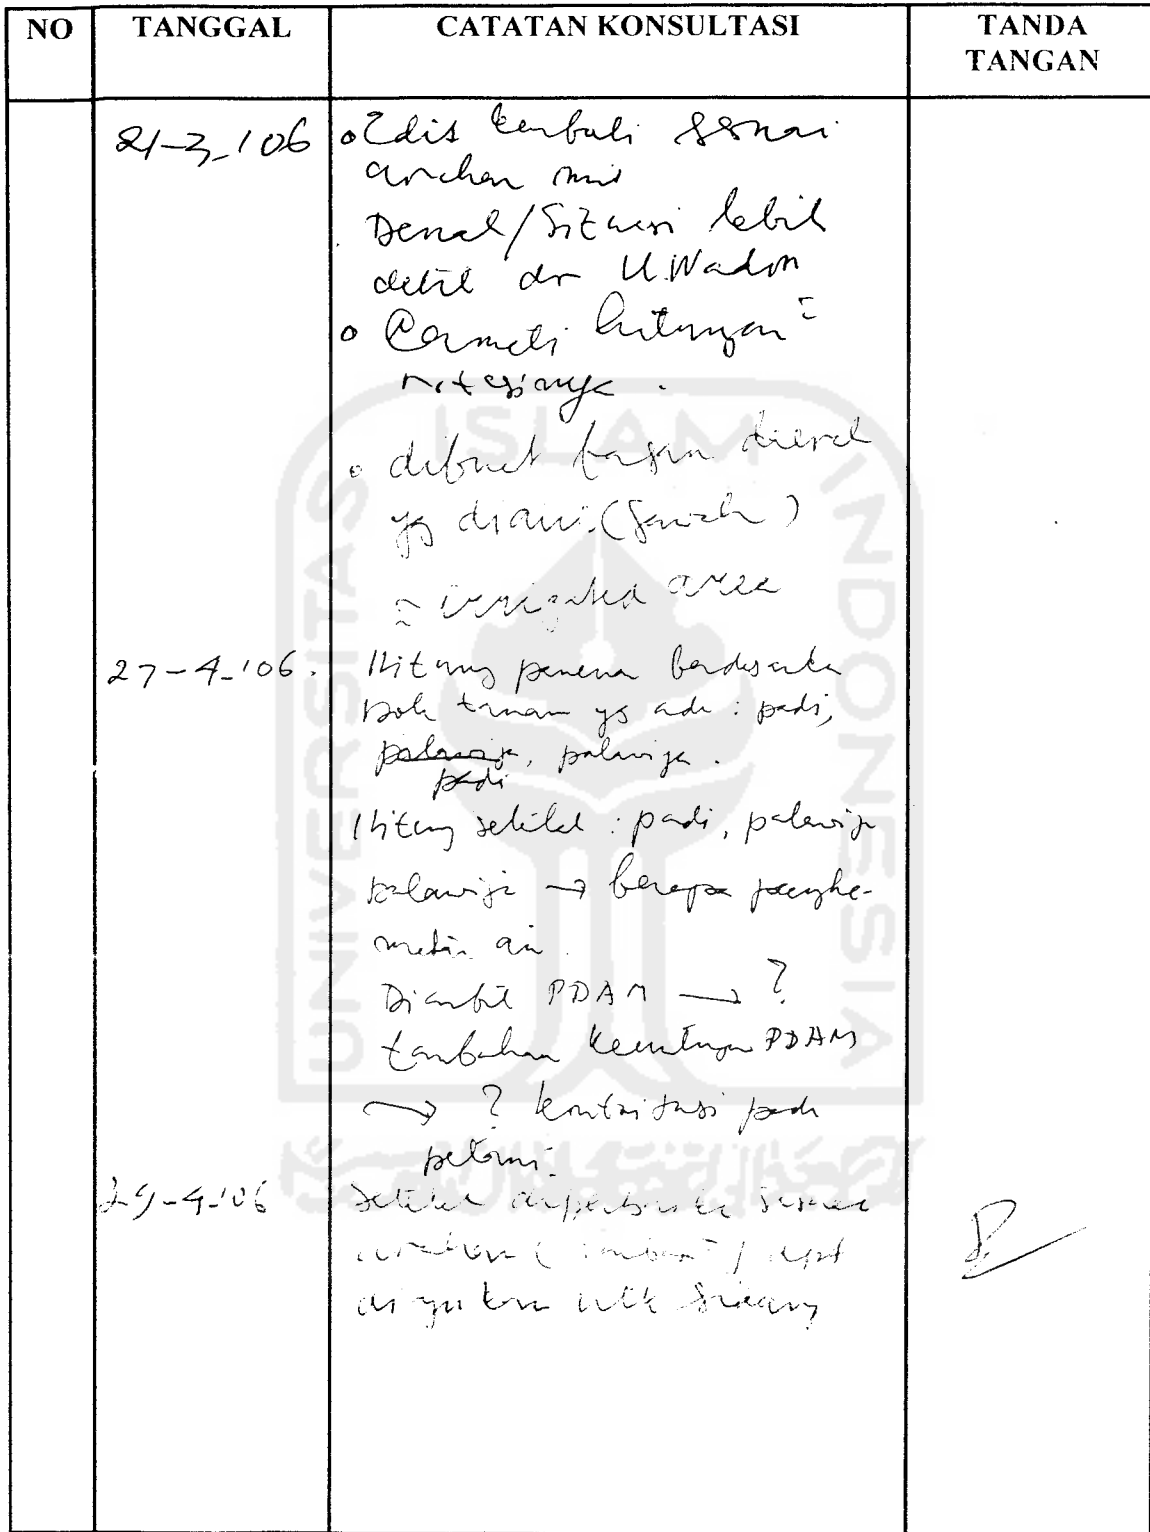 NO TANGGAL CATATAN KONSULTASI TANDA TANGAN
21-3-'06 Edit kembali sesuai
arahan
Denah/Situasi lebih
detil dr U.Wadon
Cermati hitungan=
notasinya.
dibuat bagan daerah
yg diairi (sawah)
= irrigated area
27-4-'06. Hitung panena berdasarka
pola tanam yg ada : padi,
palawija, palawija.
padi
Hitung setelah : padi, palawija
palawija → berapa penghe-
matan air.
Diambil PDAM → ?
tambahan keuntungan PDAM
→ ? kontribusi pada
petani.
29-4-'06 Setelah diperbaiki sesuai
arahan ( ) dpt
diajukan utk sidang
UNIVERSITAS ISLAM INDONESIA